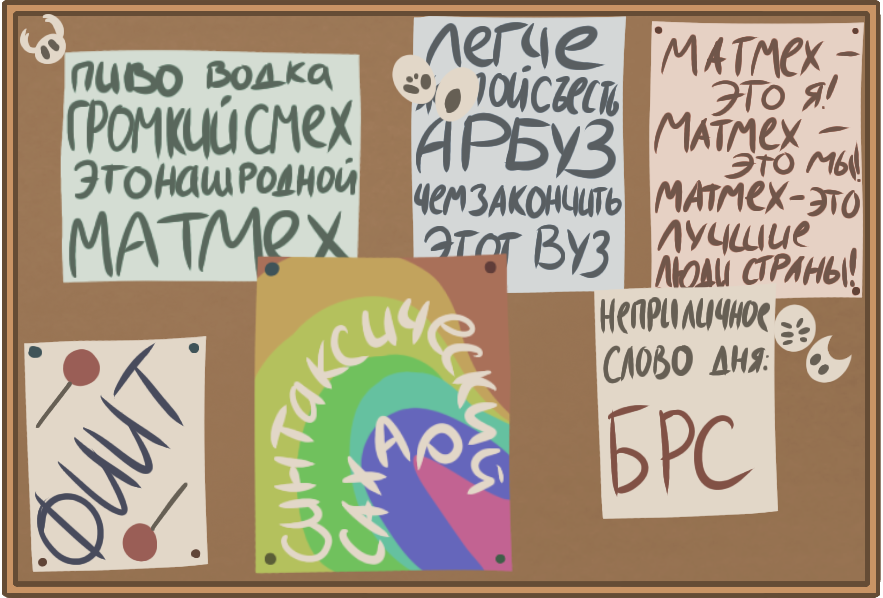 ПИВО ВОДКА
ГРОМКИЙ СМЕХ
ЭТО НАШ РОДНОЙ
МАТМЕХ
ЛЕГЧЕ
ПОЙ СЪЕСТЬ
АРБУЗ
ЧЕМ ЗАКОНЧИТЬ
ЭТОТ ВУЗ
МАТМЕХ –
ЭТО Я!
МАТМЕХ –
ЭТО МЫ!
МАТМЕХ – ЭТО
ЛУЧШИЕ
ЛЮДИ СТРАНЫ!
ФИИТ
СИНТАКСИЧЕСКИЙ
САХАР
НЕПРИЛИЧНОЕ
СЛОВО ДНЯ:
БРС